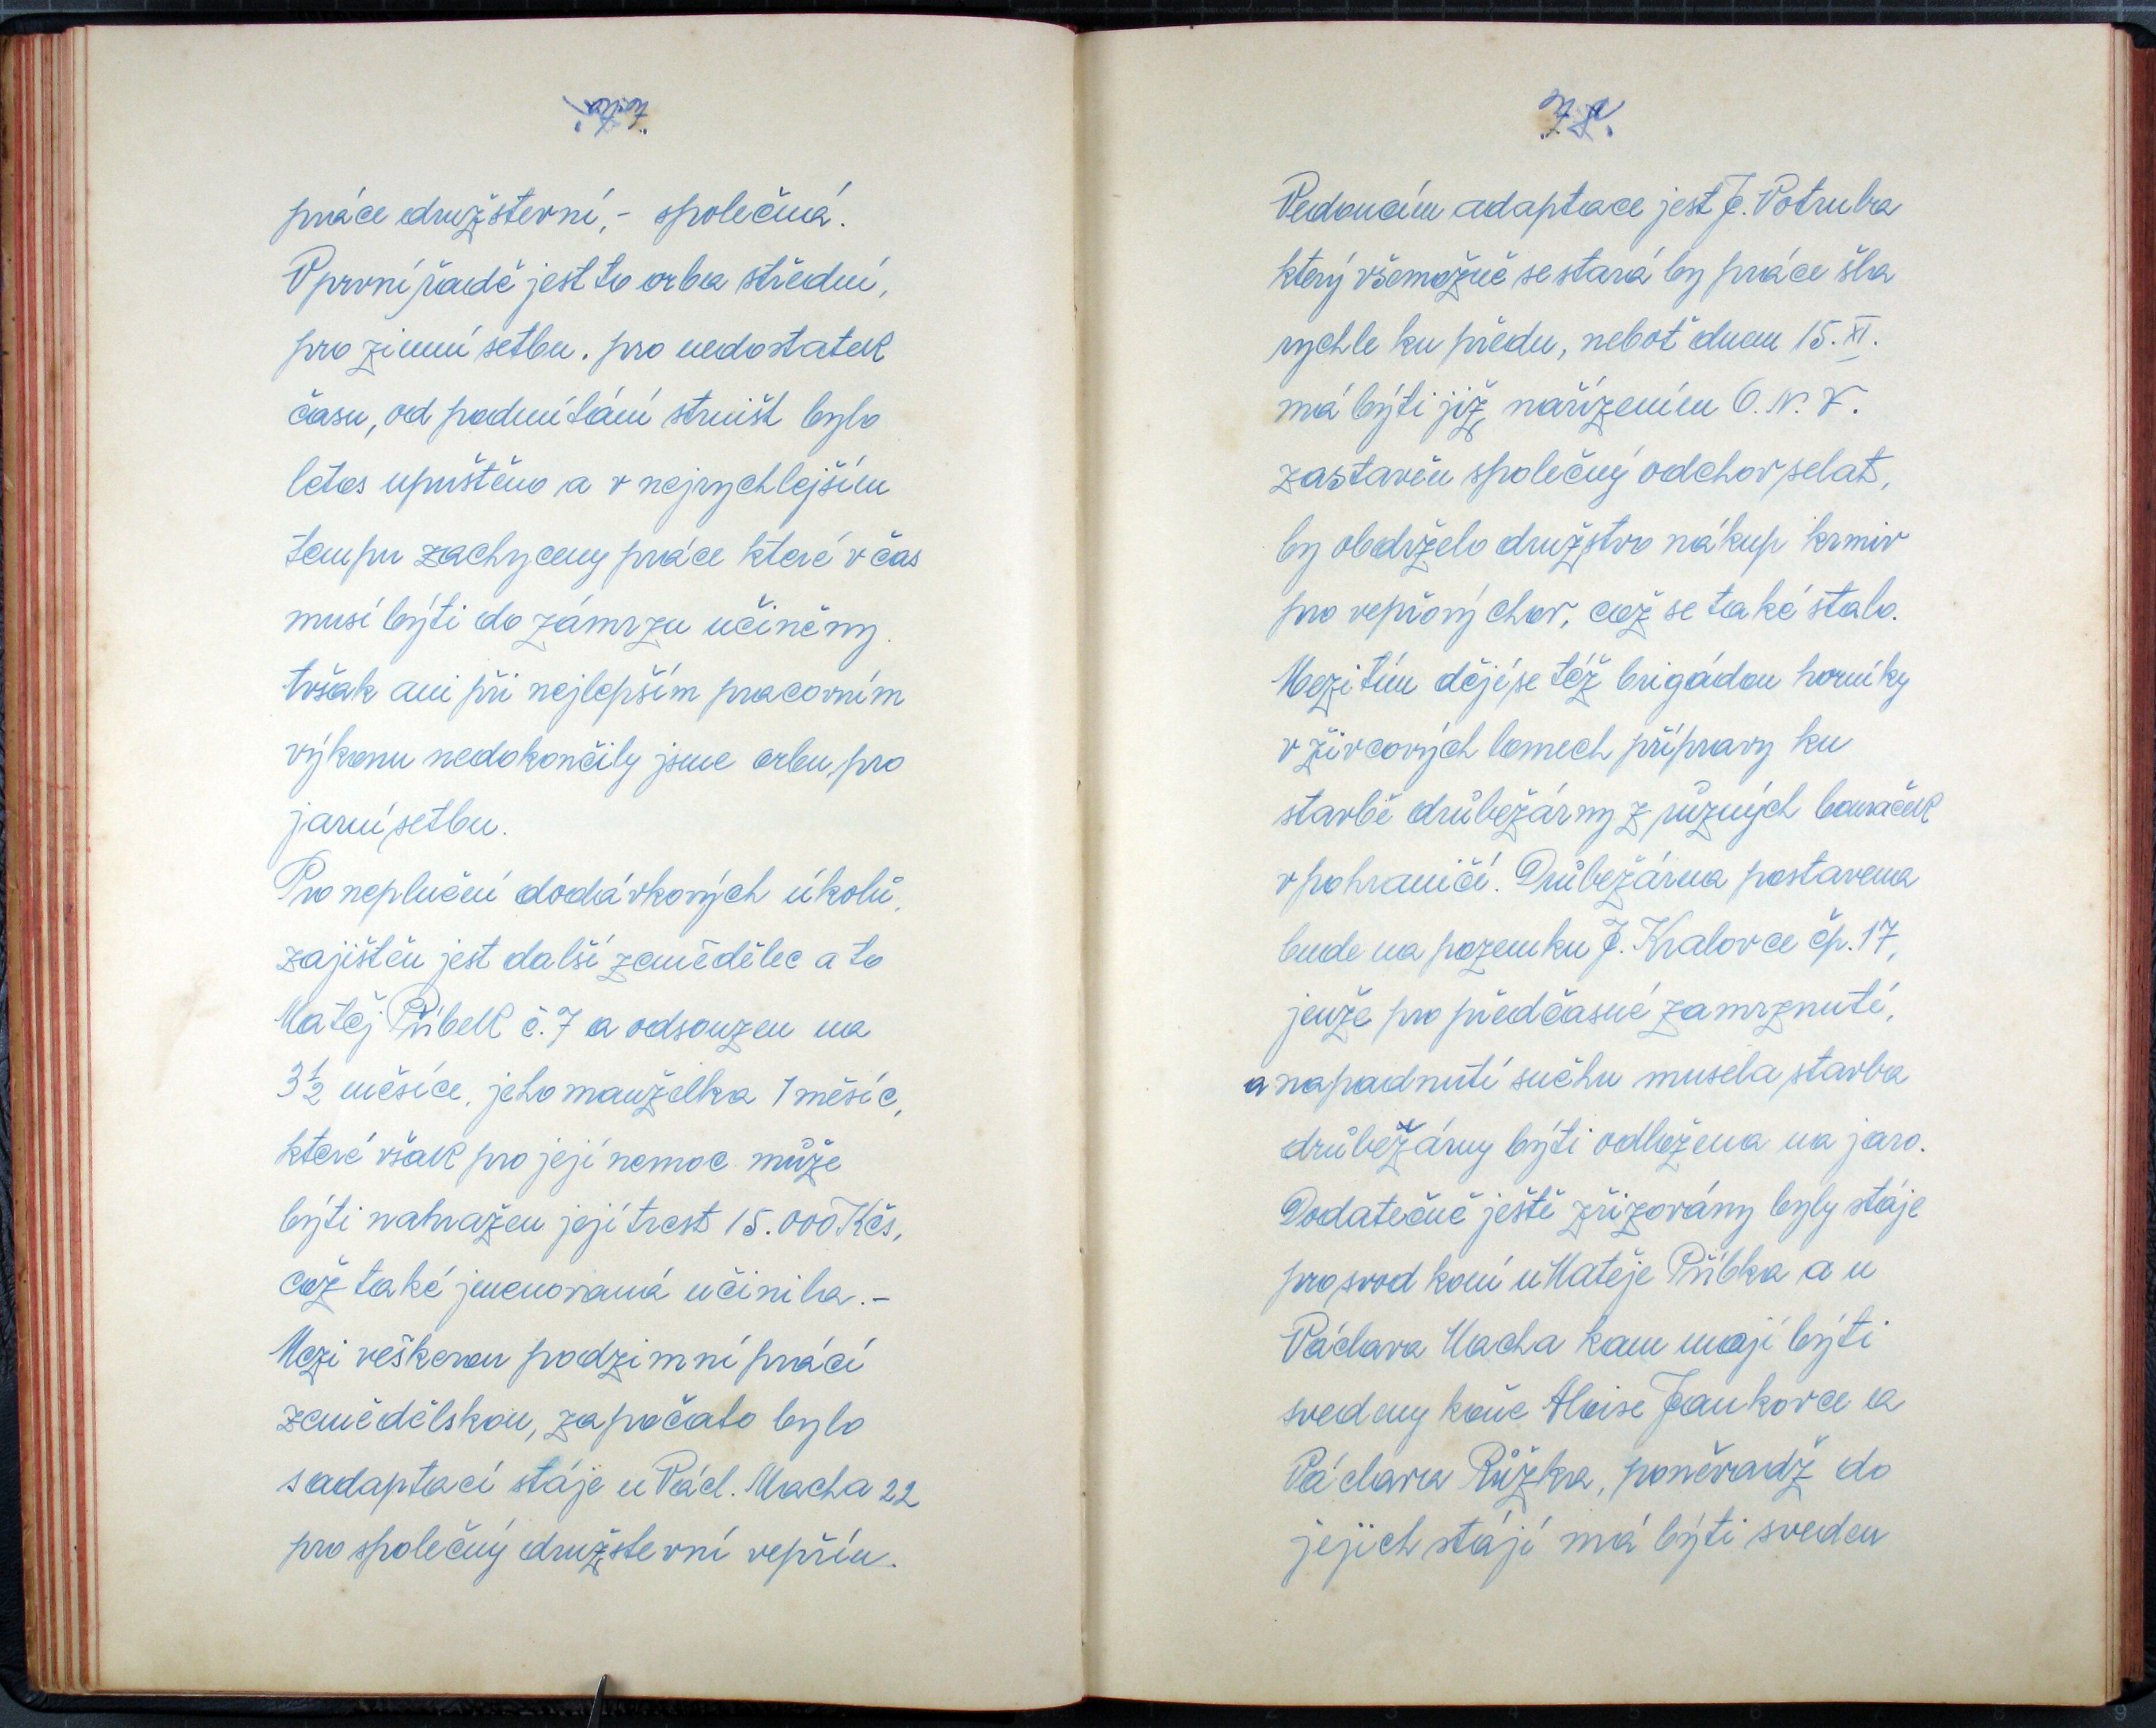 77.
práce družstevní, - společná.
V první řadě jest to orba střední,
pro zimní setbu. pro nedostatek
času, od podmítání strnišť bylo
letos upuštěno a v nejrychlejším
tempu zachyceny práce které v čas
musí býti do zámrzu učiněny.
tvšak ani při nejlepším pracovním
výkonu nedokončily jsme orbu pro
jarní setbu.
Pro neplnění dodávkových úkolů,
zajištěn jest další zemědělec a to
Matěj Přibek č. 7 a odsouzen na
3½ měsíce, jeho manželka 1 měsíc,
které však pro její nemoc může
býti nahražen její trest 15.000 Kčs,
což také jmenovaná učinila.-
Mezi veškerou podzimní prácí
zemědělskou, započato bylo
s adaptací stáje u Václ. Macha 22
pro společný družstevní vepřín.
78.
Vedoucím adaptace jest J. Potruba
který všemožně se stará by práce šla
rychle ku předu, neboť dnem 15. XI.
má býti již nařízením O. N. V.
zastavěn společný odchov selat,
by obdrželo družstvo nákup krmiv
pro vepřový chov, což se také stalo.
Mezitím dějí se též brigádou horníky
v živcových lomech přípravy ku
stavbě drůbežárny z různých bouraček
v pohraničí. Drůbežárna postavena
bude na pozemku J. Kralovce čp. 17,
jenže pro předčasné zamrznutí,
a napadnutí sněhu musela stavba
drůbežárny býti odložena na jaro.
Dodatečně ještě zřizovány byly stáje
pro svod koní u Matěje Přibka a u
Václava Macha kam mají býti
svedeny koně Aloise Jankovce a
Václava Růžka, poněvadž do
jejich stájí má býti sveden